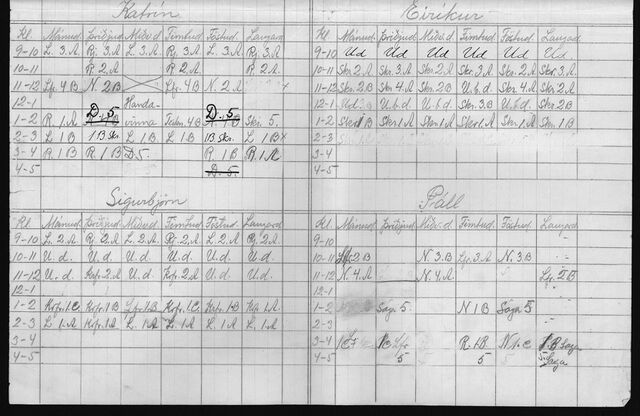 Katrín
Kl. Mánud. þriðjud. Miðv.d. Fimtud. Föstud. Laugard.
9-10 L. 3.A R. 3.A L. 3.A R. 3.A L. 3.A R. 3.A
10-11 R. 2.A R. 2.A R. 2.A
11-12 Lfr. 4B N. 2B Lfr. 4B N. 2.A
12-1 Handa-
D. 5 D. 5
1-2 R. 1.A vinna Teikn. 4B Skr. 5.
2-3 L. 1B 1B Skr. L. 1B L. 1B 1B Skr. L. 1B x
3-4 R. 1B R. 1B D 5. R. 1B R. 1.A
4-5 D. 5.
Eiríkur
Kl. Mánud. þriðjud. Miðv.d. Fimtud. Föstud. Laugard
9-10 Ud Ud Ud Ud Ud Ud
10-11 Skr. 2.A Skr. 3.A Skr. 2.A Skr. 3.A Skr. 2.A Skr. 3.A
11-12 Skr. 2B Skr. 4.A Skr. 2B U.b.d Skr. 4.A Skr. 2B
12-1 U.b.d U.b.d Skr. 3.B U.b.d Skr. 2B
1-2 Skr. 1.A Skr. 1.A Skr. 1.A Skr. 1.A Skr. 1.A Skr. 1B
2-3
3-4
4-5
Sigurbjörn
Kl. Mánud. þriðjud. Miðv.d Fimtud. Föstud. Laugard.
9-10 L. 2.A R. 2.A L. 2.A R. 2.A L. 2.A R. 2.A
10-11 U. d. U. d. U. d. U. d. U. d. U. d.
11-12 U. d. Krfr. 2.A U. d. Krfr. 2.A U. d. U. d.
12-1
1-2 Krfr. 1.C. Krfr. 1B Krfr. 1.C. Krfr. 1.B Krfr. 1.A
2-3 L. 1.A Krfr. 1.A L. 1.A L. 1.A L. 1.A
3-4
4-5
Páll
Kl. Mánud. þriðjud. Miðv.d Fimtud. Föstud. Laugard
9-10
10-11 2.B N. 3.B Lfr. 3.A N. 3.B
11-12 N. 4.A N. 4.A Lfr. 2B
12-1
1-2 Saga 5. N 1B Saga 5
2-3
3-4 Lfr. R. 1.B N 1.C
4-5 5 5 5. Saga